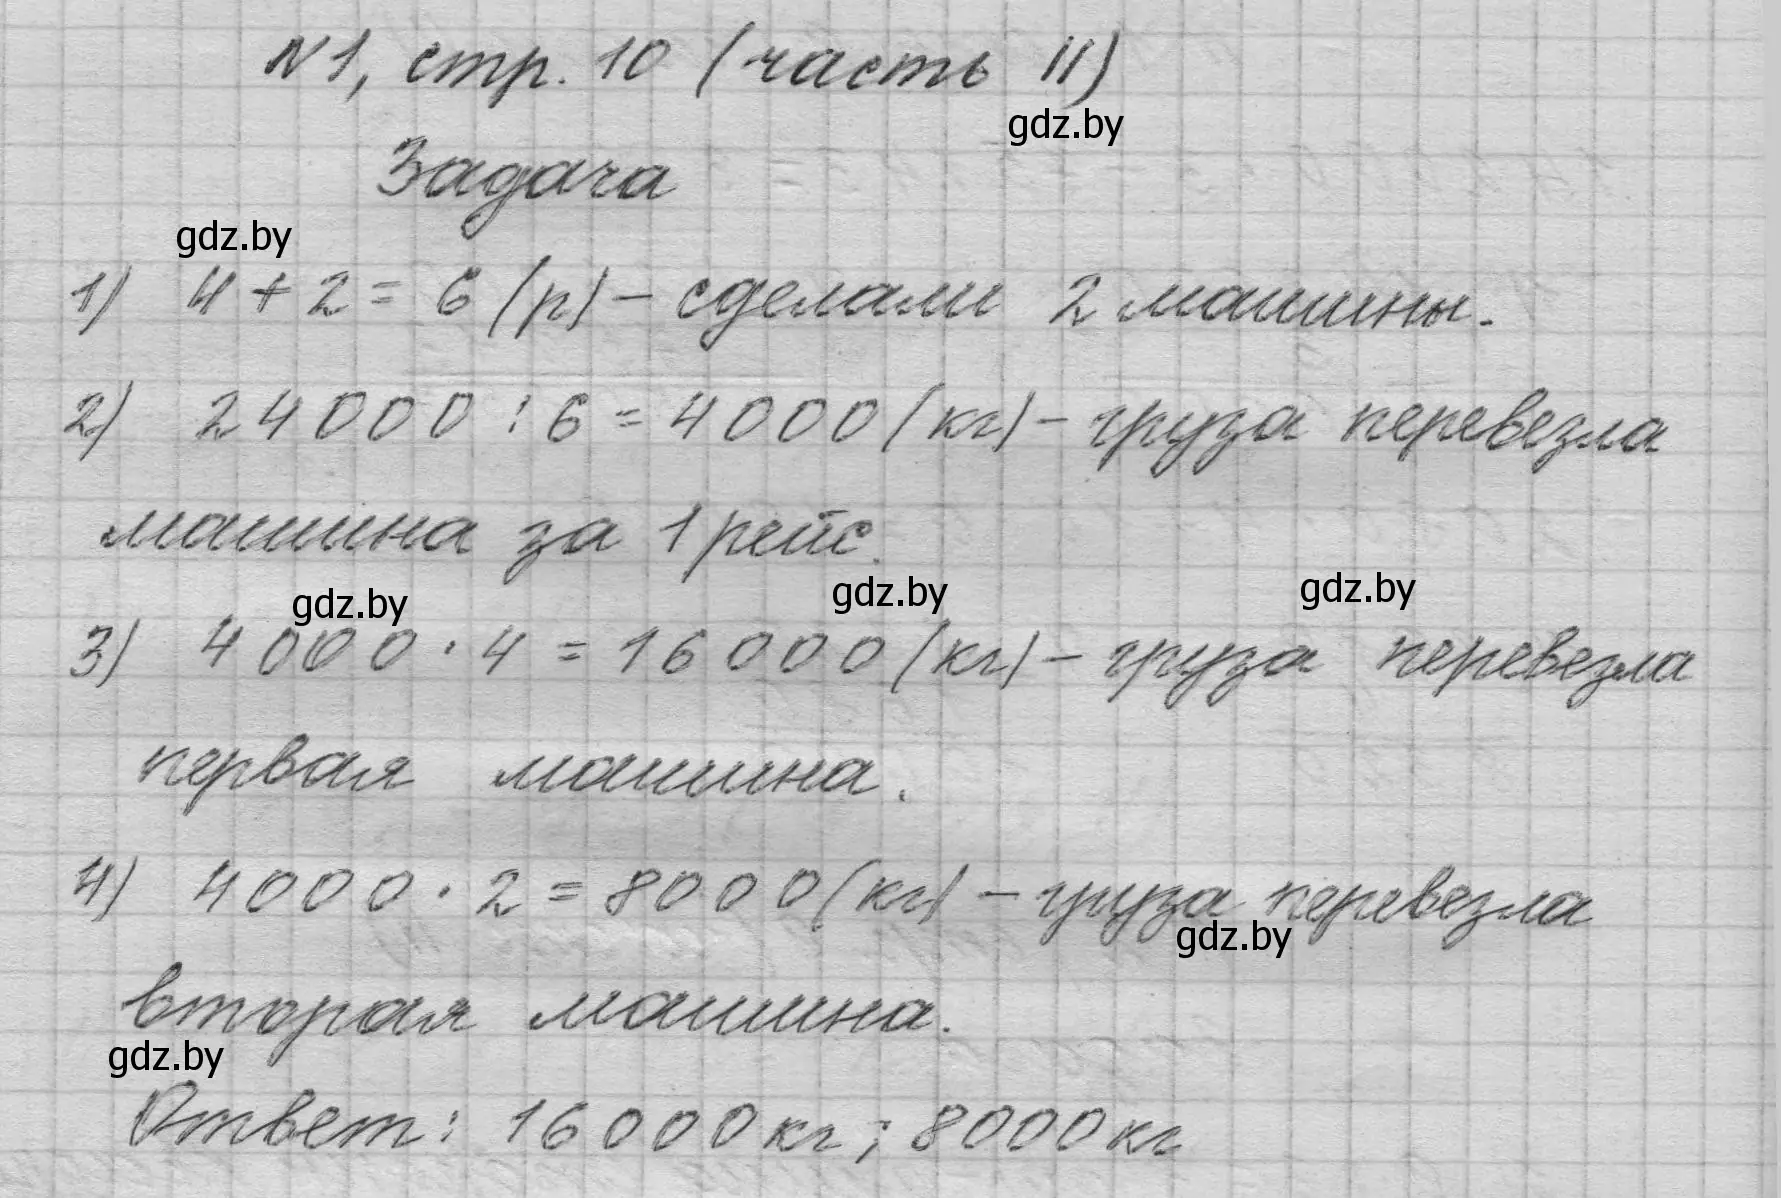 №1, стр. 10 (часть II)
gdz.by
Задача
gdz.by
1) 4 + 2 = 6 (р) – сделали 2 машины.
2) 24000 : 6 = 4000 (кг) – груза перевезла
машина за 1 рейс.
gdz.by gdz.by gdz.by
3) 4000 · 4 = 16000 (кг) – груза перевезла
первая машина.
4) 4000 · 2 = 8000 (кг) – груза перевезла
gdz.by
вторая машина.
gdz.by
Ответ: 16000 кг; 8000 кг